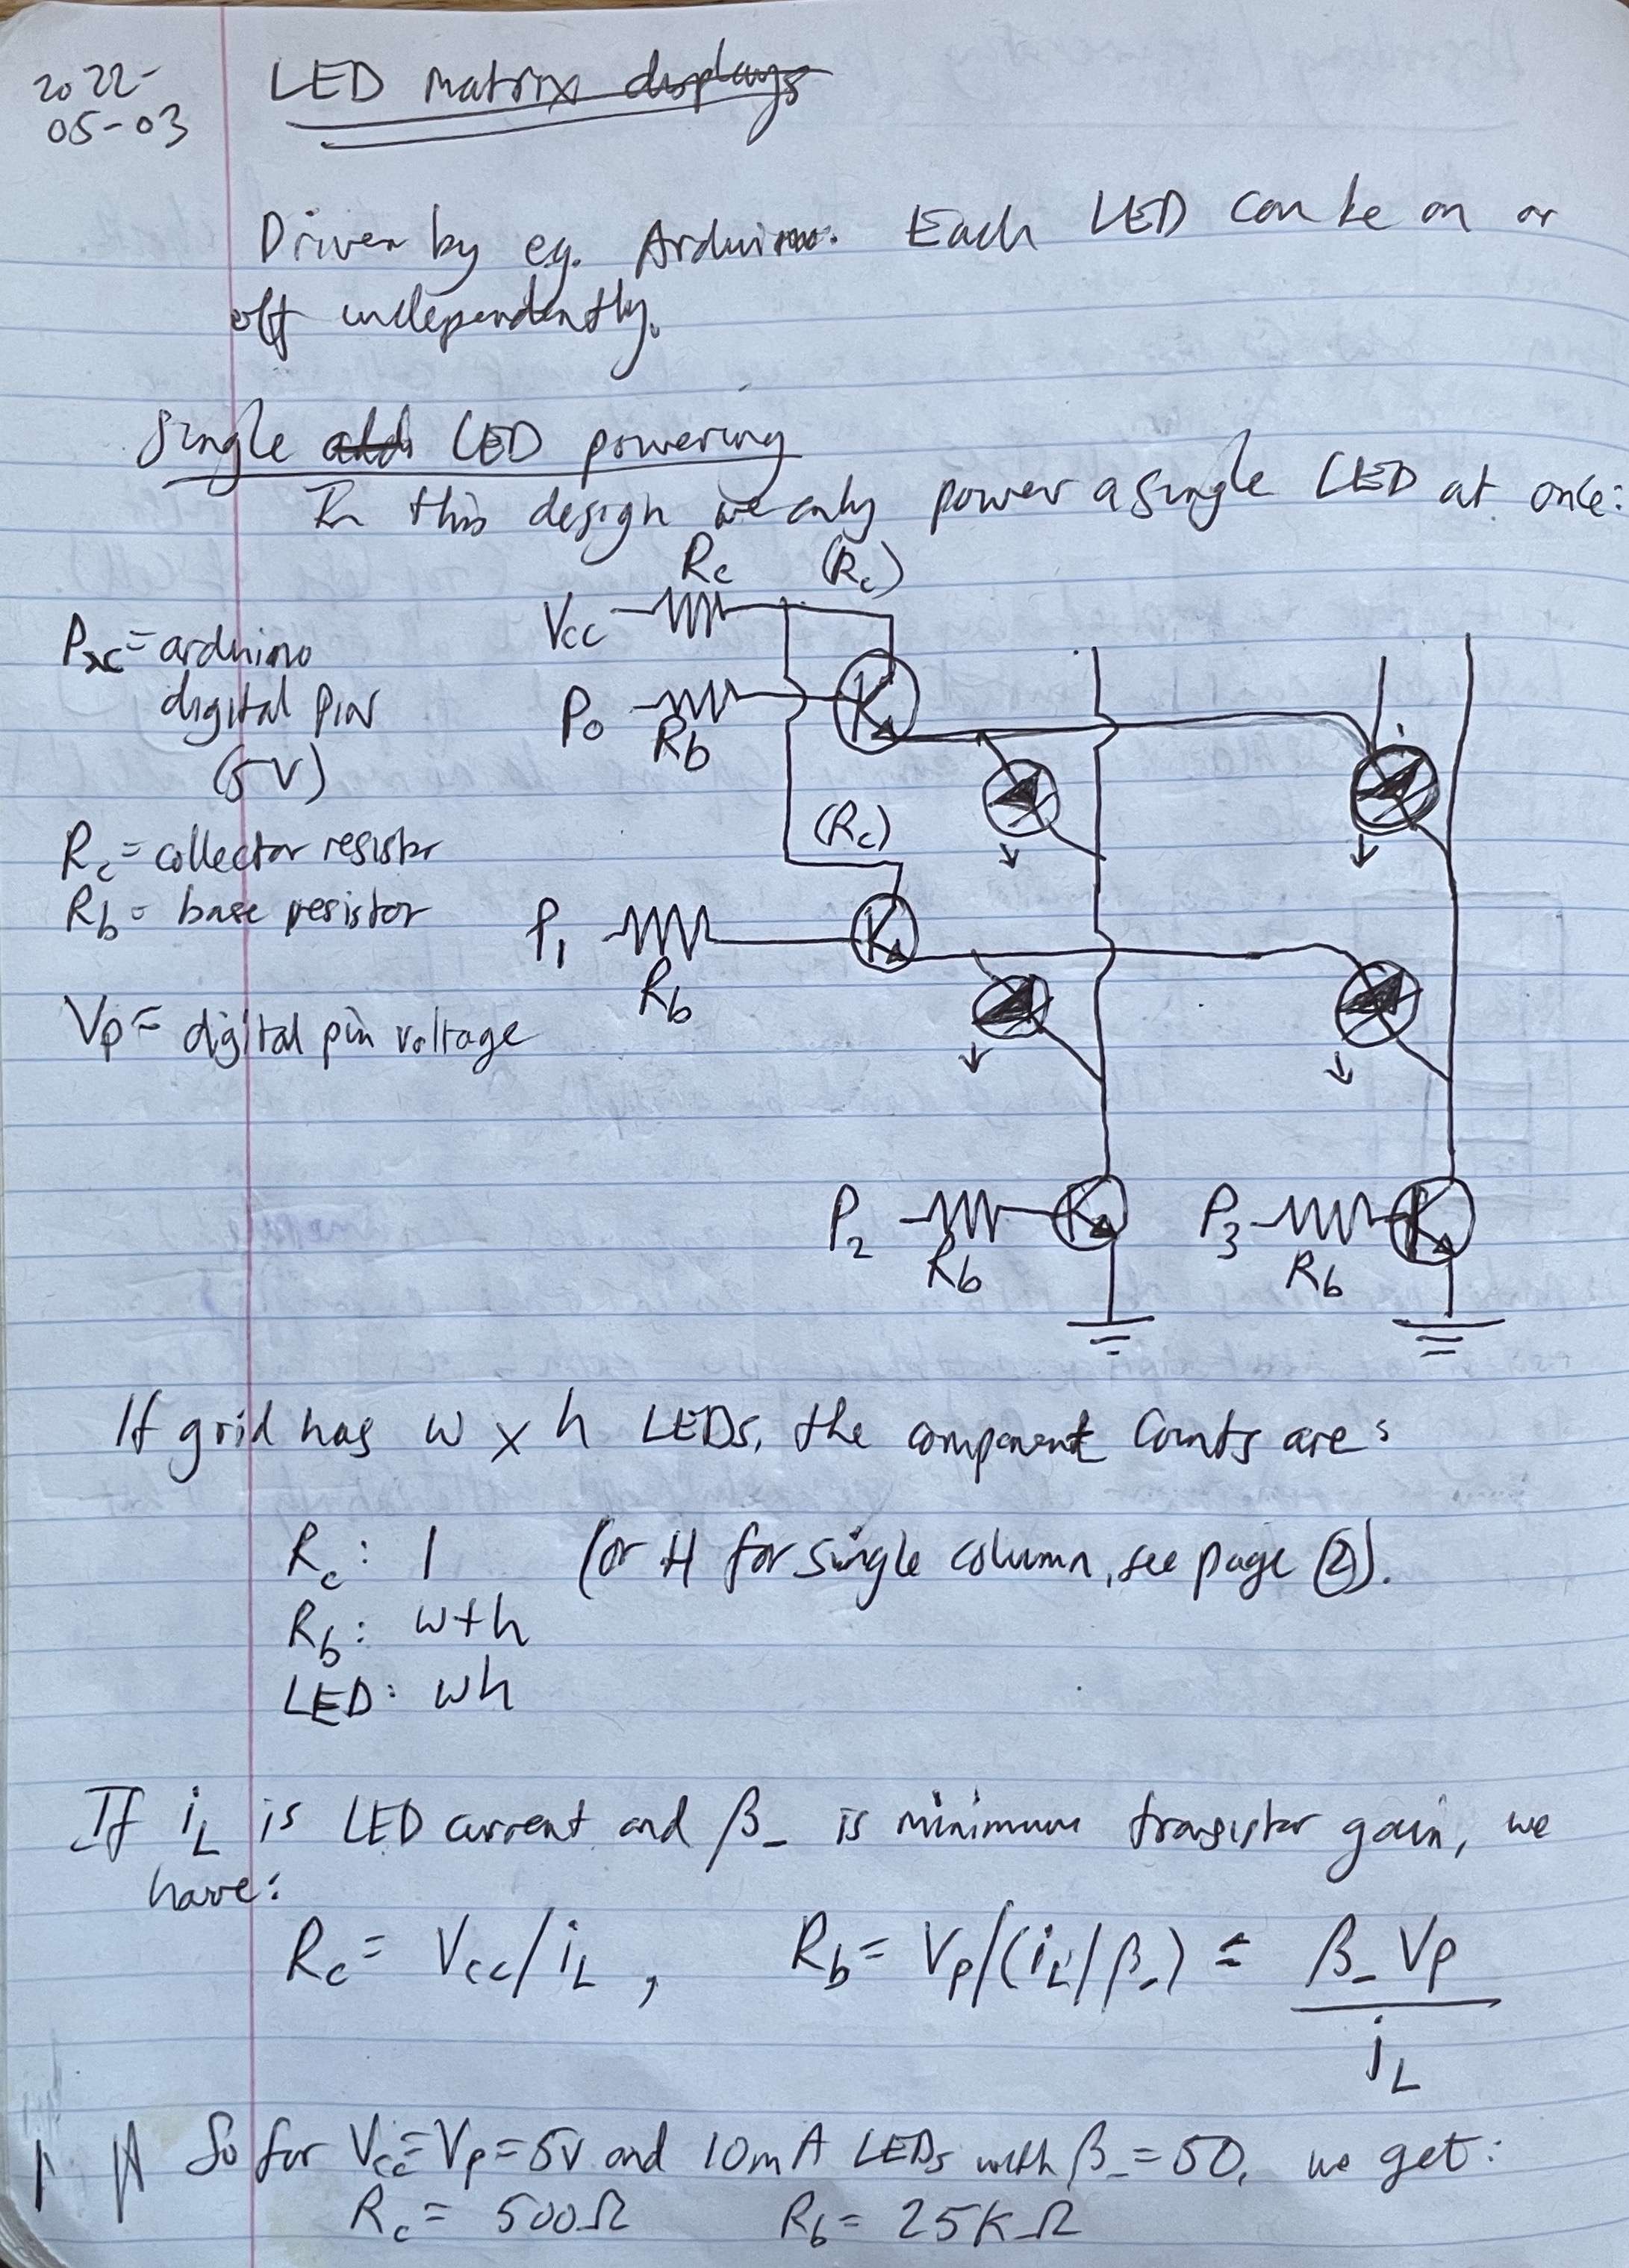 2022-
05-03
LED matrix displays
Driven by eg. Arduino. Each LED can be on or
off independently.
Single LED powering
In this design we only power a single LED at once:
Rc (Rc)
Vcc
Px = arduino
digital pin
(5V)
P0
Rb
(Rc)
Rc = collector resistor
Rb = base resistor
P1
Rb
Vp = digital pin voltage
P2 P3
Rb Rb
If grid has w x h LEDs, the component counts are:
Rc: 1 (or H for single column, see page ②).
Rb: w+h
LED: wh
If iL is LED current and β_ is minimum transistor gain, we
have:
Rc = Vcc/iL, Rb = Vp/(iL/β_) = β_ Vp
iL
So for Vcc=Vp=5V and 10mA LEDs with β_=50, we get:
Rc = 500Ω Rb = 25KΩ